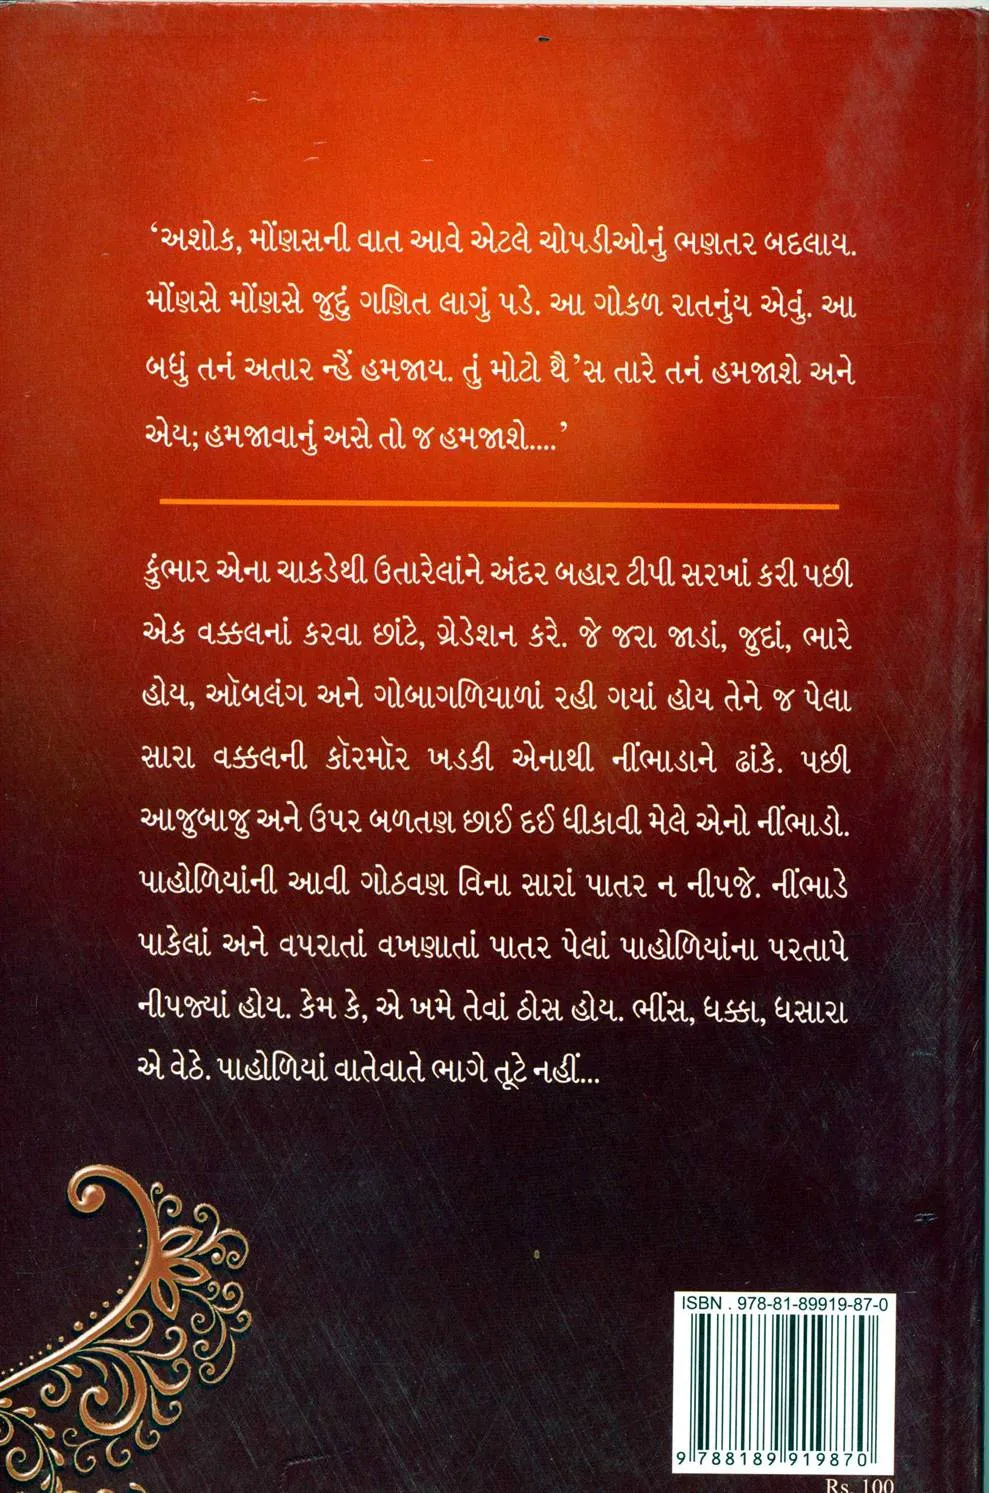 ‘અશોક, મોંણસની વાત આવે એટલે ચોપડીઓનું ભણતર બદલાય.
મોંણસે મોંણસે જુદું ગણિત લાગું પડે. આ ગોકળ રાતનુંય એવું. આ
બધું તનં અતાર ન્હૈં હમજાય. તું મોટો થૈ’સ તારે તનં હમજાશે અને
એય; હમજાવાનું અસે તો જ હમજાશે....’
કુંભાર એના ચાકડેથી ઉતારેલાંને અંદર બહાર ટીપી સરખાં કરી પછી
એક વક્કલનાં કરવા છાંટે, ગ્રેડેશન કરે. જે જરા જાડાં, જુદાં, ભારે
હોય, ઑબલંગ અને ગોબાગળિયાળાં રહી ગયાં હોય તેને જ પેલા
સારા વક્કલની કૉરમૉર ખડકી એનાથી નીંભાડાને ઢાંકે. પછી
આજુબાજુ અને ઉપર બળતણ છાઈ દઈ ધીકાવી મેલે એનો નીંભાડો.
પાહોળિયાંની આવી ગોઠવણ વિના સારાં પાતર ન નીપજે. નીંભાડે
પાકેલાં અને વપરાતાં વખણાતાં પાતર પેલાં પાહોળિયાંના પરતાપે
નીપજ્યાં હોય. કેમ કે, એ ખમે તેવાં ઠોસ હોય. ભીંસ, ધક્કા, ધસારા
એ વેઠે. પાહોળિયાં વાતેવાતે ભાગે તૂટે નહીં...
ISBN . 978-81-89919-87-0
9 788189 919870
Rs. 100